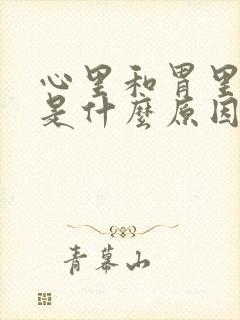 心里和胃里
是什麼原因
青幕山